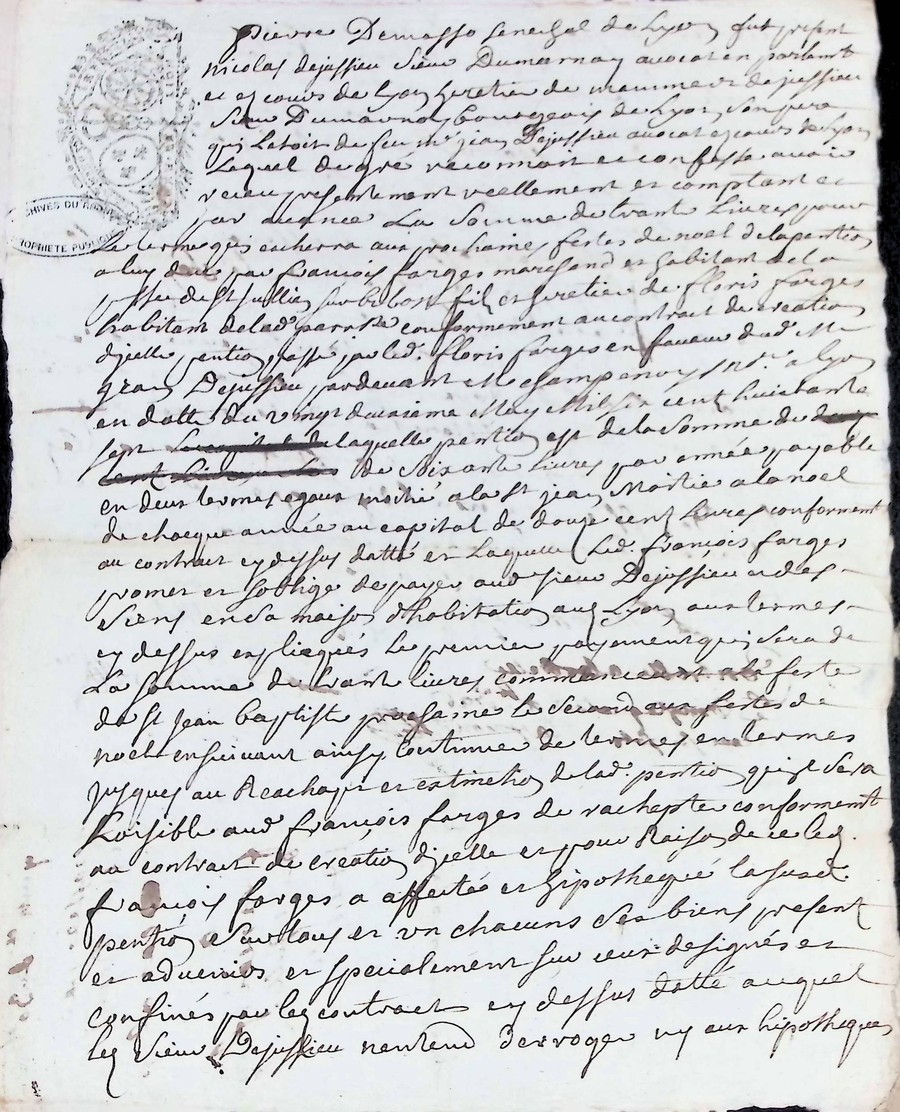 Pierre Demasso senechal de Lyon fut present
Nicolas dejussieu sieur Dumarnay avocat en parlemt
et es cours de Lyon heretier de de jussieu
sieur Dumarnay bourgeois de Lyon son pere
qui Letoit de feu Mr jean Dejussieu avocat es cours de Lyon
Lequel de gré reconnoit et confesse avoir
receu presentement reellement et comptant et
par avance La somme de trante Livres pour
ARCHIVES DU RHONE
PROPRIETE PUBLIQUE
Le terme qui escherra aux prochaines festes de noel de la pention
a luy due par francois farges marchand et habitant de la
de St Jullien sur bibost fils et heretier de floris farges
habitant de lad. parrsse conformement au contract de creation
djcelle pention passé par led. floris farges en faveur dud. Mr
jean Dejussieu pardevant Me champenoys nore. a Lyon
en datte du vingt deuxieme May Mil six cent huictante
sept laquelle pention est de la somme de
de soixante Livres par année payable
en deux termes egaux moitié a la St jean Moitie a la noel
de chacque année au capital de douze cent Livres conforment
au contract cy dessus datté et Laquelle Led. francois farges
promet et soblige de payer aud. sieur Dejussieu et des
siens en sa maison d'habitation aud. Lyon aux termes
cy dessus expliequés Le premier payement qui sera de
La somme de trante livres commenceant a la feste
de St Jean baptiste prochaine le second aux festes de
noel ensuivant ainsy continuer de termes en termes
jusques au Reachapt et extinction de lad. pention qu'il sera
Loisible aud. francois farges de rachepter conformemt
au contract de creation djcelle et pour Raison de ce led.
francois farges a affecté et hipothequé la susd.
pention sur tous et un chacuns ses biens present
et advenirs et specialement sur ceux designés et
confinés par led. contract cy dessus datté auquel
led. sieur Dejussieu nentend derroger ny aux hipotheques